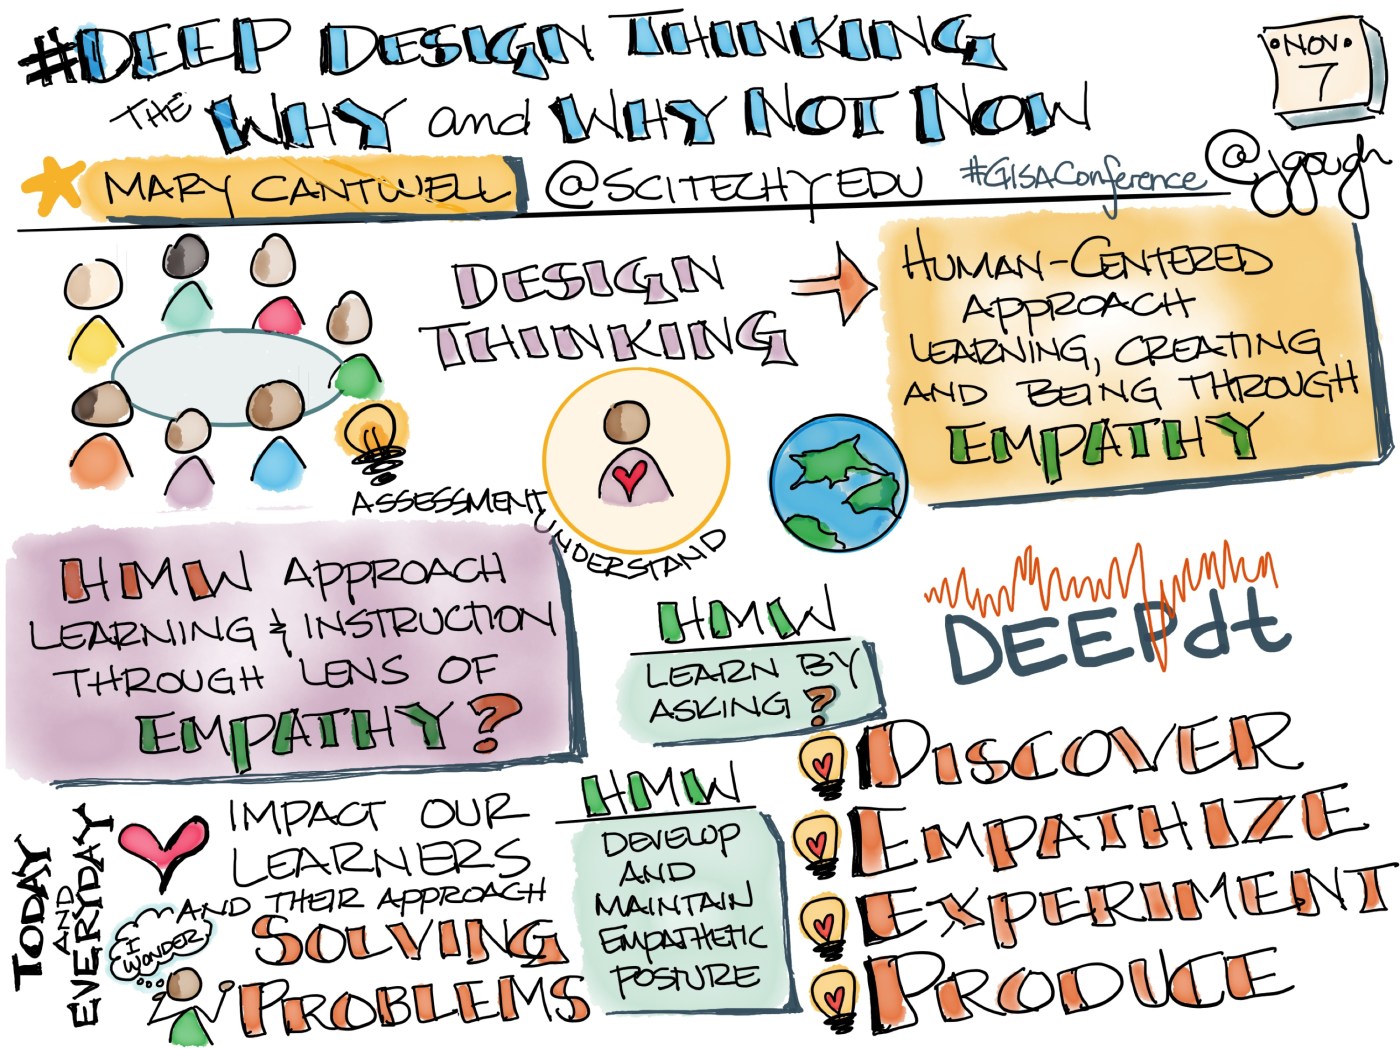 #DEEP DESIGN THINKING
THE WHY and WHY NOT NOW
NOV.
7
MARY CANTWELL @SCITECHYEDU #GISAConference @jgough
DESIGN
THINKING
HUMAN-CENTERED
APPROACH
LEARNING, CREATING
AND BEING THROUGH
EMPATHY
ASSESSMENT
UNDERSTAND
HMW APPROACH
LEARNING & INSTRUCTION
THROUGH LENS OF
EMPATHY?
HMW
LEARN BY
ASKING ?
DEEPdt
DISCOVER
EMPATHIZE
EXPERIMENT
PRODUCE
HMW
DEVELOP
AND
MAINTAIN
EMPATHETIC
POSTURE
TODAY
AND
EVERYDAY
IMPACT OUR
LEARNERS
AND THEIR APPROACH
SOLVING
PROBLEMS
I
WONDER